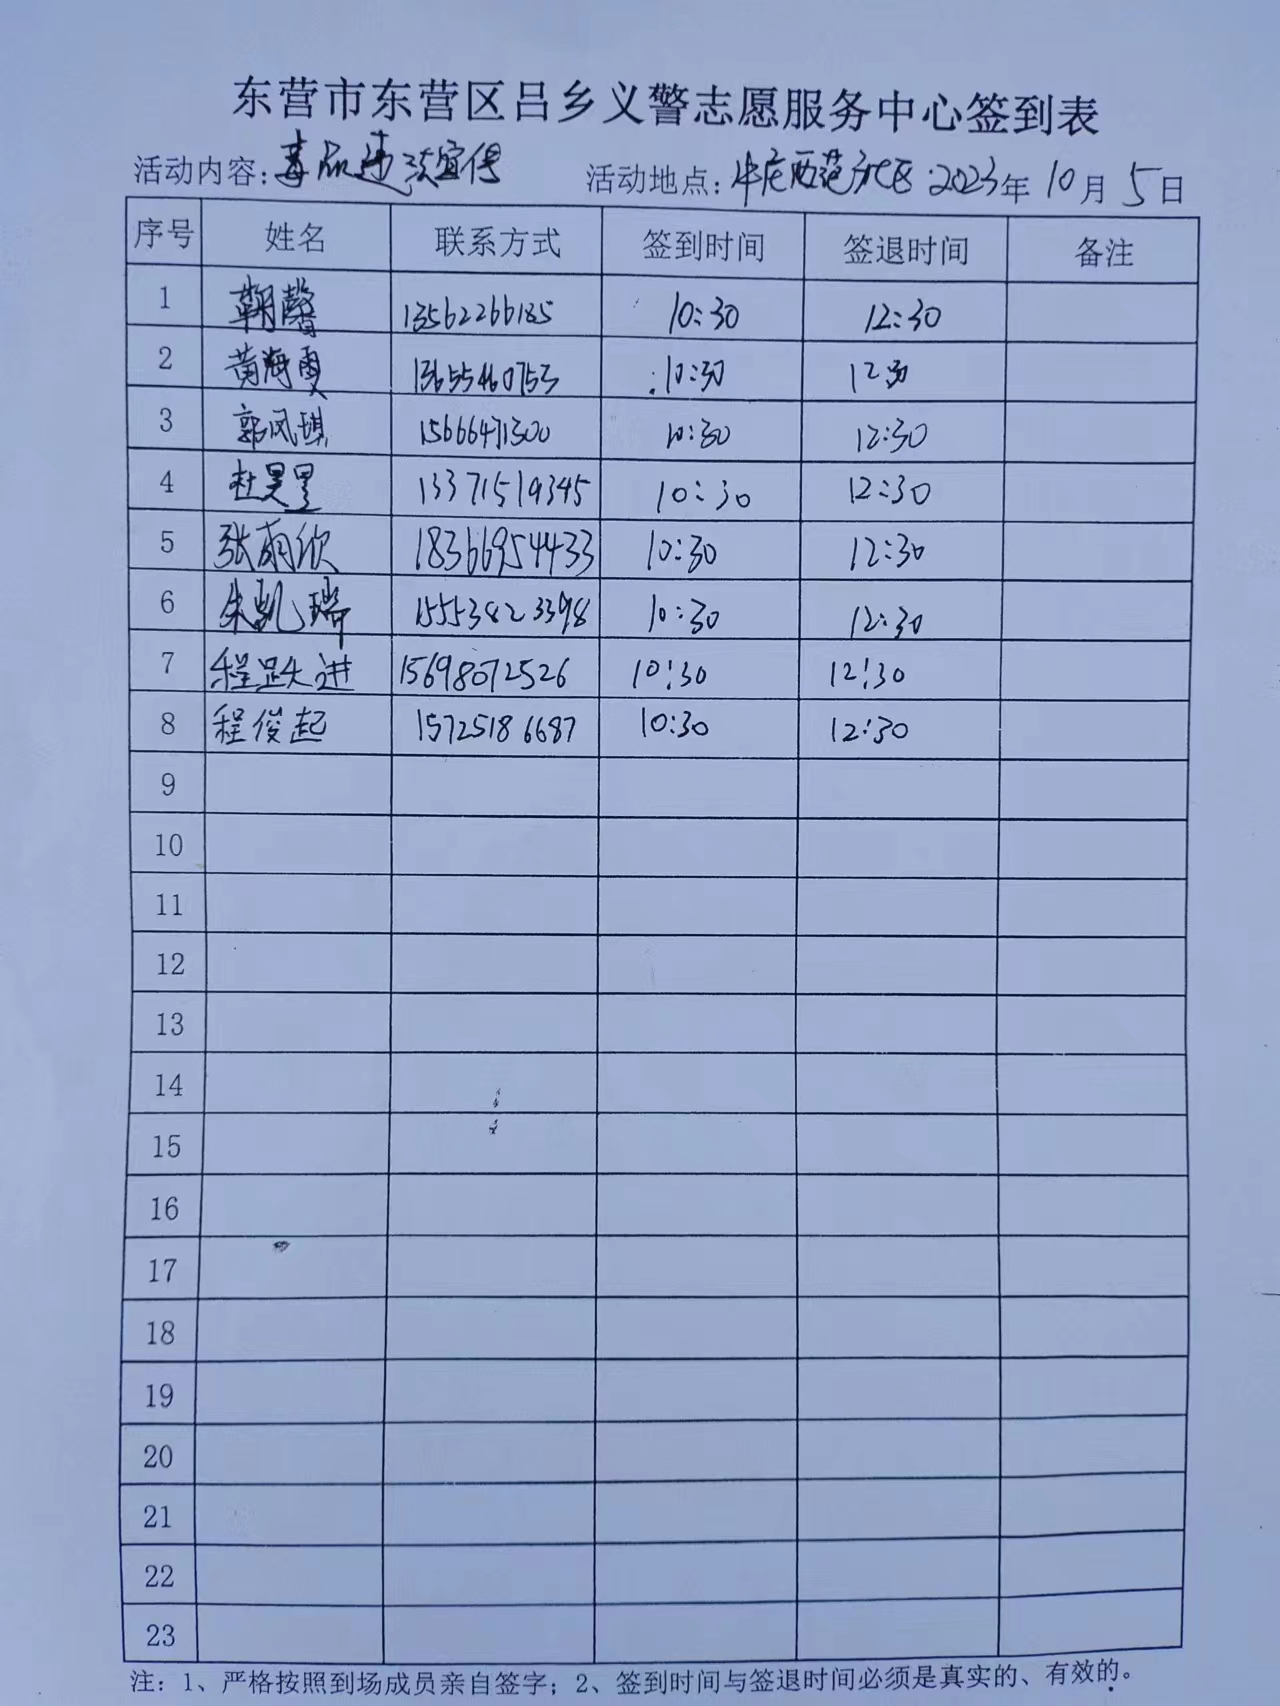 东营市东营区吕乡义警志愿服务中心签到表
活动内容：毒品违法宣传 活动地点：牛庄西范社区 2023年10月5日
序号 姓名 联系方式 签到时间 签退时间 备注
1 鞠馨 13562266185 10:30 12:30
2 黄海霞 13655460753 10:30 12:30
3 郭凤琪 15666471300 10:30 12:30
4 杜昊昱 13371519345 10:30 12:30
5 张雨欣 18366954433 10:30 12:30
6 朱凯瑞 15553823398 10:30 12:30
7 程跃进 15698072526 10:30 12:30
8 程俊起 15725186687 10:30 12:30
9
10
11
12
13
14
15
16
17
18
19
20
21
22
23
注：1、严格按照到场成员亲自签字；2、签到时间与签退时间必须是真实的、有效的。